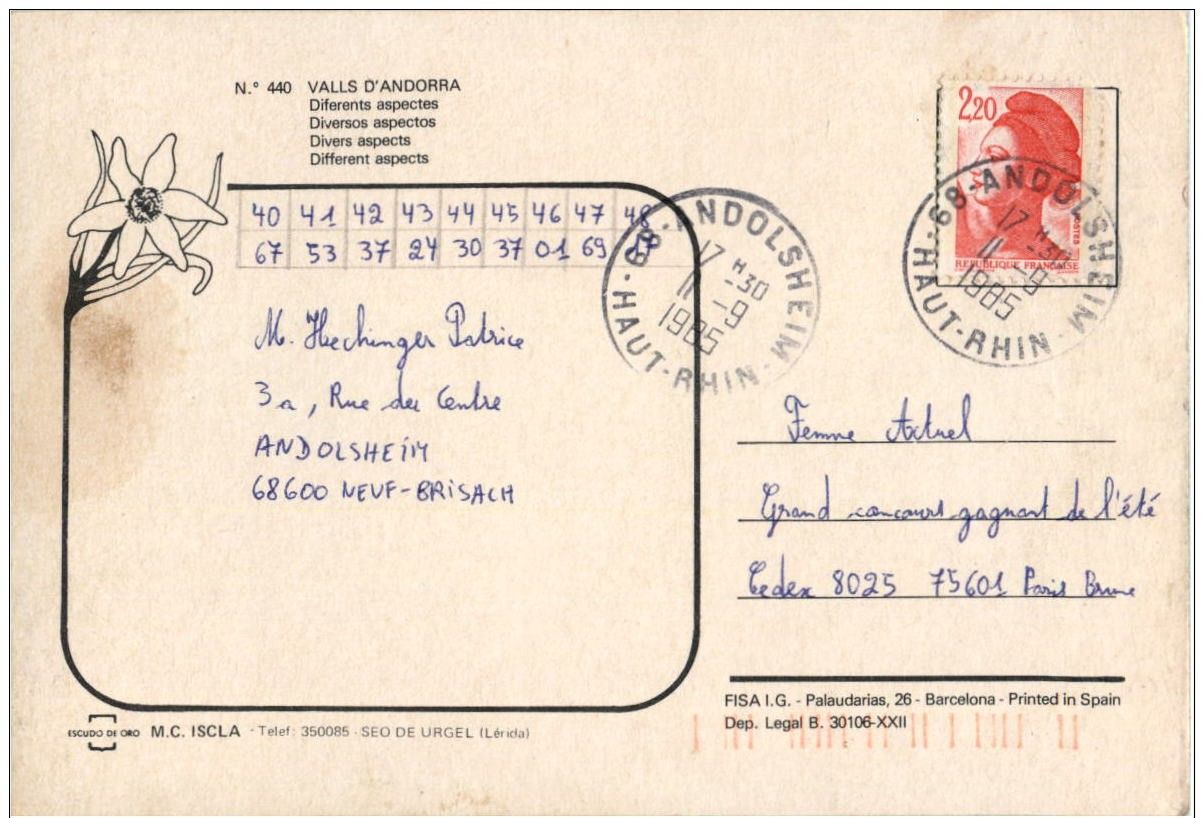 N.° 440 VALLS D'ANDORRA
Diferents aspectes
Diversos aspectos
Divers aspects
Different aspects
2,20
POSTES
REPUBLIQUE FRANÇAISE
68-ANDOLSHEIM
17 H 30
11-9
1985
HAUT-RHIN
68-ANDOLSHEIM
17 H 30
11-9
1985
HAUT-RHIN
40 41 42 43 44 45 46 47 48
67 53 37 24 30 37 01 69 17
M. Hechinger Patrice
3a, Rue du Centre
ANDOLSHEIM
68600 NEUF-BRISACH
Femme Actuel
Grand concours gagnant de l'été
Cedex 8025 75601 Paris Brune
FISA I.G. - Palaudarias, 26 - Barcelona - Printed in Spain
Dep. Legal B. 30106-XXII
ESCUDO DE ORO M.C. ISCLA - Telef: 350085 - SEO DE URGEL (Lérida)